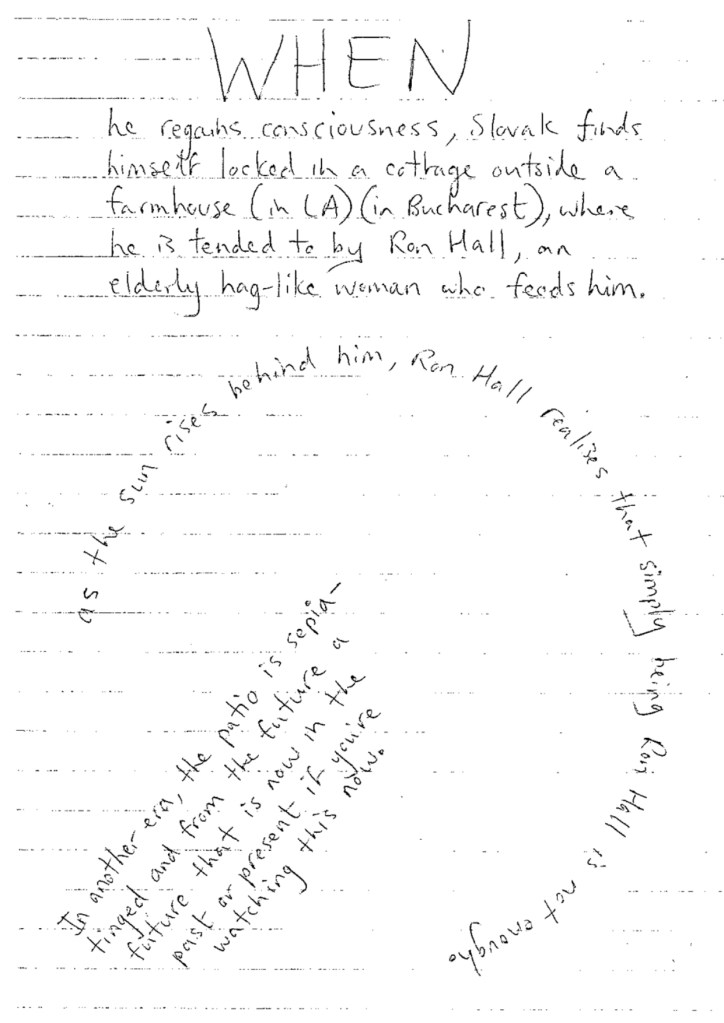 WHEN
he regains consciousness, Slovak finds
himself locked in a cottage outside a
farmhouse (in LA) (in Bucharest), where
he is tended to by Ron Hall, an
elderly hag-like woman who feeds him.
as the sun rises behind him, Ron Hall realises that simply being Ron Hall is not enough.
In another era, the patio is sepia-
tinged and from the future a
future that is now in the
past or present if you're
watching this now.